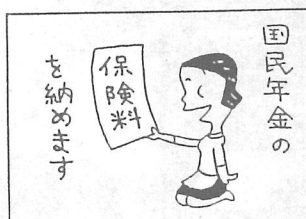 国民年金の
保険料
を納めます